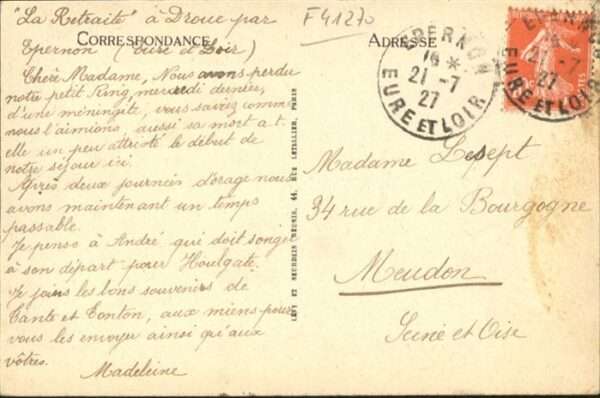 "La Retraite" à Droue par
Epernon (Eure et Loir)
CORRESPONDANCE
Chère Madame, Nous avons perdu
notre petit King, mercredi dernier,
d'une méningite, vous savez comme
nous l'aimions, aussi sa mort a-t-
elle un peu attristé le début de
notre séjour ici.
Après deux journées d'orage nous
avons maintenant un temps
passable.
Je pense à André qui doit songer
à son départ pour Houlgate.
Je joins les bons souvenirs de
Tante et Tonton, aux miens pour
vous les envoyer ainsi qu'aux
vôtres.
Madeleine
F41270
ADRESSE
EPERNON
21-7
27
EURE ET LOIR
EPERNON
21-7
27
EURE ET LOIR
Madame Lesept
34 rue de la Bourgogne
Meudon
Seine et Oise
LEVY ET NEURDEIN RÉUNIS, 44, RUE LETELLIER, PARIS